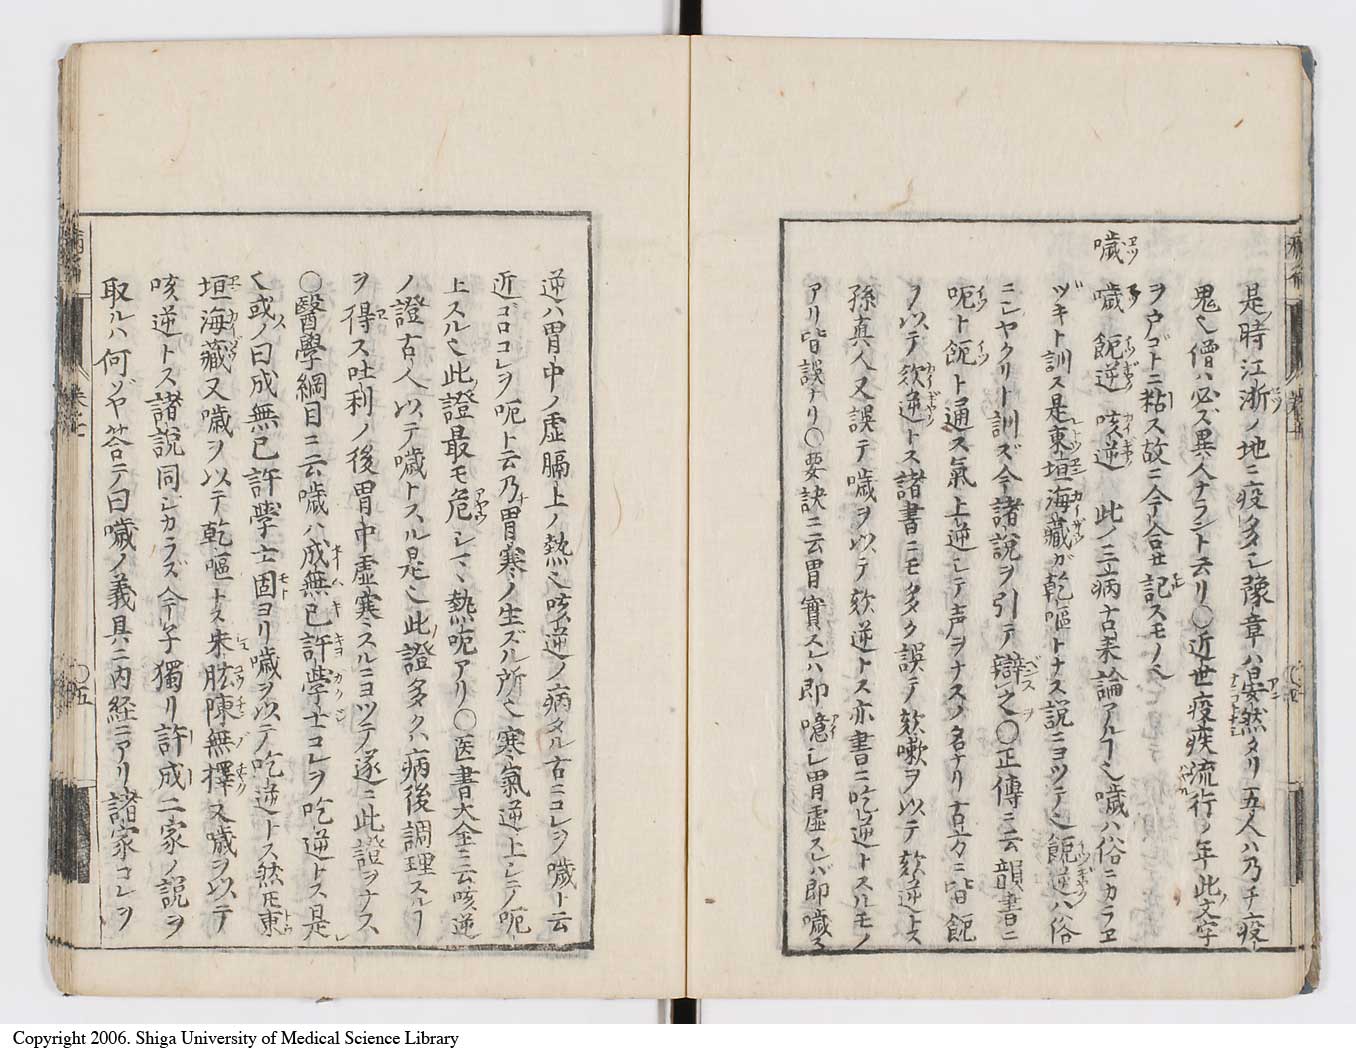 是時江浙ノ地ニ疫多シ豫章ハ晏然タリ五人ハ乃チ疫
鬼也僧ハ必ズ異人ナラント云リ〇近世疫疾流行ノ年此文字
ヲ戸ゴトニ粘ス故ニ今合セ記スモノ也
噦 噦 䭇逆 咳逆 此ノ三病古来論アルヿ也噦ハ俗ニカラヱ
ヅキト訓ス是東垣海藏ガ乾嘔トナス説ニヨツテ也䭇逆ハ俗
ニシヤクリト訓ズ今諸説ヲ引テ辯之〇正傳ニ云韻書ニ
呃ト䭇ト通ス氣上逆シテ声ヲナスノ名ナリ古方ニ皆䭇
ヲ以テ欬逆トス諸書ニモ多ク誤テ欬嗽ヲ以テ欬逆トス
孫真人又誤テ噦ヲ以テ欬逆トス亦書ニ吃逆トスルモノ
アリ皆誤ナリ〇要訣ニ云胃實スレハ即噫シ胃虚スレバ即噦ス
逆ハ胃中ノ虚膈上ノ熱也咳逆ノ病タル古ニコレヲ噦ト云
近ゴロコレヲ呃ト云乃胃寒ノ生ズル所也寒氣逆上シテ呃
上スル也此證最モ危シ亦熱呃アリ〇医書大全ニ云咳逆
ノ證古人以テ噦トスル是也此證多クハ病後調理スルヿ
ヲ得ス吐利ノ後胃中虚寒スルニヨツテ遂ニ此證ヲナス
〇醫學綱目ニ云噦ハ成無已許學士コレヲ吃逆トス是
也或ノ曰成無已許學士固ヨリ噦ヲ以テ吃逆トス然𪜈東
垣海藏又噦ヲ以テ乾嘔トス朱肱陳無擇又噦ヲ以テ
咳逆トス諸説同ジカラズ今子獨リ許成二家ノ説ヲ
取ルハ何ゾヤ答テ曰噦ノ義具ニ内経ニアリ諸家コレヲ
Copyright 2006. Shiga University of Medical Science Library